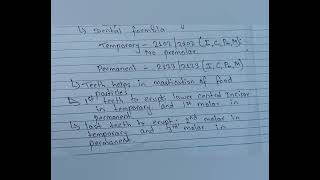 ↳ Dental formula
Temporary - 2102/2102 (I, C, Pm, M)
No premolar.
Permanent - 2123/2123 (I, C, Pm, M)
↳ Teeth helps in mastication of food
Particles.
↳ 1st teeth to erupt: lower central Incisor
in temporary and 1st molar in
permanent
↳ last teeth to erupt: 2nd molar in
temporary and 3rd molar in
permanent